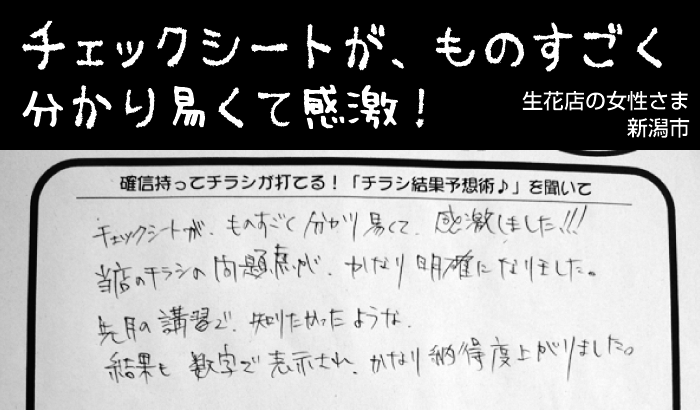 チェックシートが、ものすごく
分かり易くて感激！
生花店の女性さま
新潟市
確信持ってチラシが打てる！「チラシ結果予想術♪」を聞いて
チェックシートが、ものすごく分かり易くて、感激しました!!!
当店のチラシの問題点が、かなり明確になりました。
先月の講習で、知りたかったような、
結果も数字で表示され、かなり納得度上がりました。